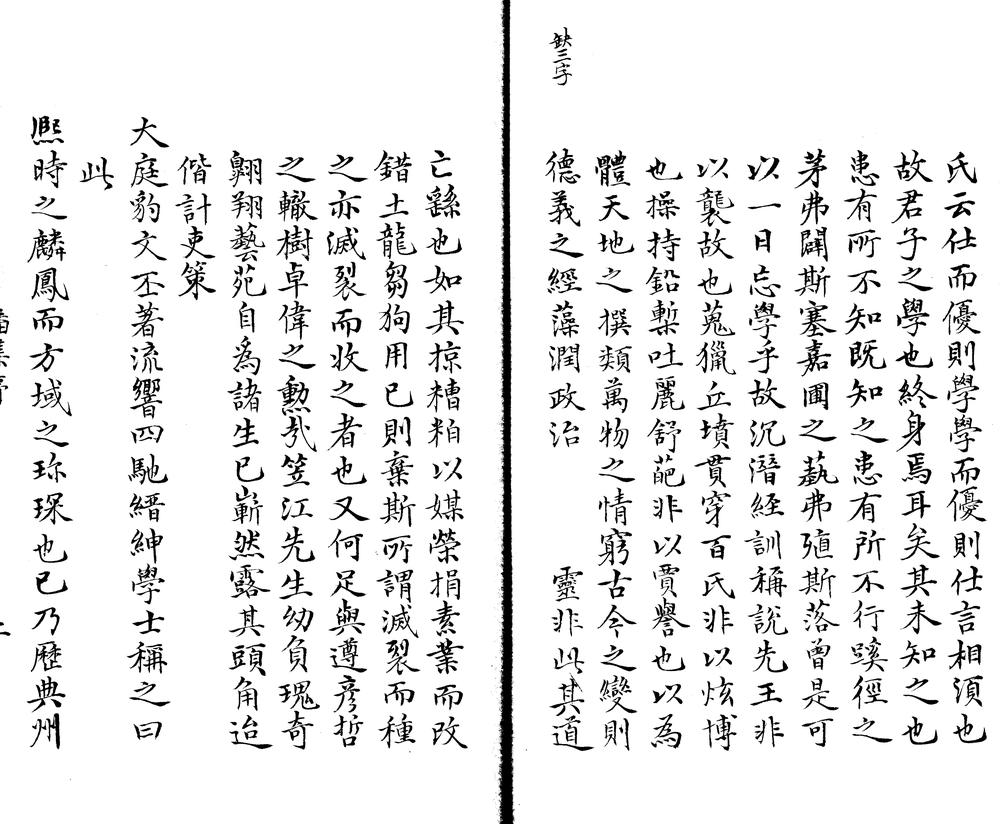 氏云仕而優則學學而優則仕言相須也
故君子之學也終身焉耳矣其未知之也
患有所不知既知之患有所不行蹊徑之
茅弗闢斯塞嘉圃之蓺弗殖斯落曾是可
以一日忘學乎故沉潛経訓稱說先王非
以襲故也蒐獵丘墳貫穿百氏非以炫博
也操持鉛槧吐麗舒葩非以賈譽也以為
體天地之撰類萬物之情窮古今之變則
德義之經藻潤政治　　　靈非此其道
缺三字
亡繇也如其掠糟粕以媒榮捐素業而改
錯土龍芻狗用已則棄斯所謂滅裂而種
之亦滅裂而收之者也又何足與遵彦哲
之轍樹卓偉之勲哉笠江先生幼負瑰奇
翺翔藝苑自為諸生已嶄然露其頭角迨
偕計吏策
大庭豹文丕著流響四馳縉紳學士稱之曰
此
熈時之麟鳳而方域之珎琛也已乃歴典州